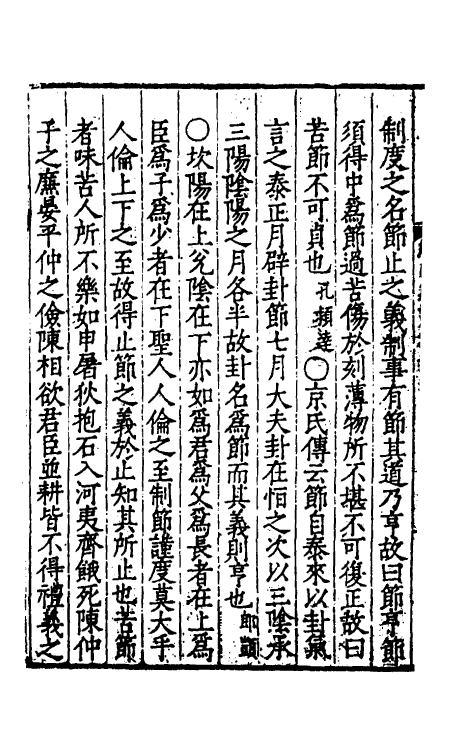 制度之名節止之義制事有節其道乃亨故曰節亨節
須得中爲節過苦傷於刻薄物所不堪不可復正故曰
苦節不可貞也孔頴達〇京氏傳云節自泰來以卦氣
言之泰正月辟卦節七月大夫卦在恒之次以三陰承
三陽陰陽之月各半故卦名爲節而其義則亨也
〇坎陽在上兊陰在下亦如爲君爲父爲長者在上爲
臣爲子爲少者在下聖人人倫之至制節謹度莫大乎
人倫上下之至故得止節之義於止知其所止也苦節
者味苦人所不樂如申屠狄抱石入河夷齊餓死陳仲
子之廉晏平仲之儉陳相欲君臣並耕皆不得禮義之